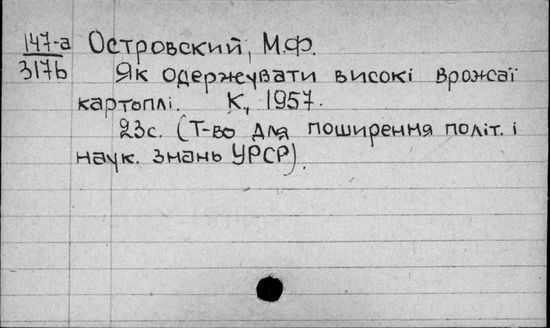 147-а Островский, М.Ф.
317b Як одержувати високі врожаї
картоплі. К., 1957.
23с. (Т-во для поширення політ. і
наук. знань УРСР).